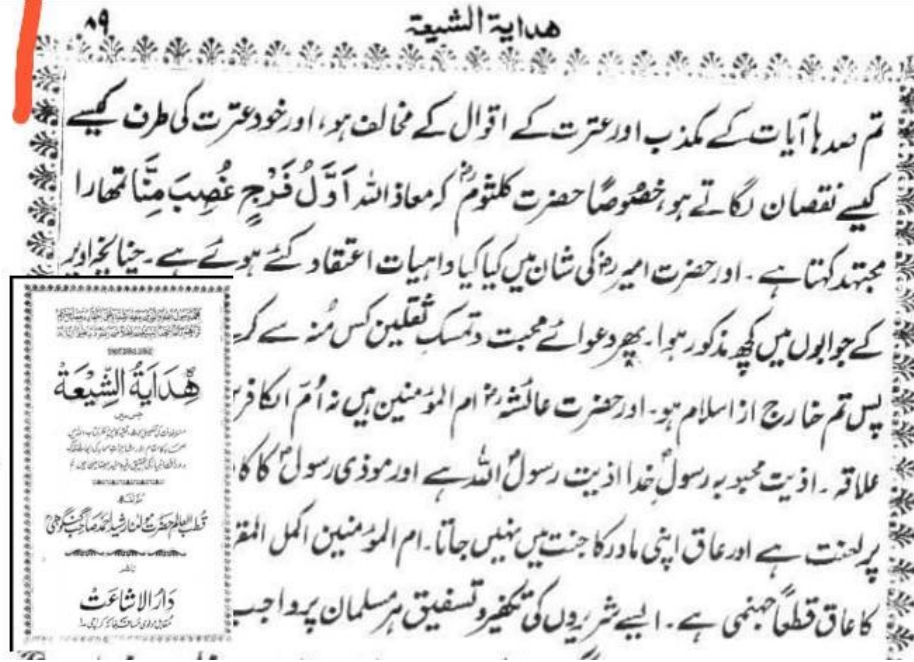 ۸۹
هدایة الشیعة
تم صدہا آیات کے مکذب اور عترت کے اقوال کے مخالف ہو، اور خود عترت کی طرف کیسے
کیسے نقصان لگاتے ہو، خصُوصًا حضرت کلثومؓ کہ معاذ اللہ اَوَّلُ فَرْجٍ غُصِبَ مِنَّا تمھارا
مجتہد کہتا ہے ۔ اور حضرت امیرؓ کی شان میں کیا کیا واہیات اعتقاد کئے ہوئے ہے ۔ چنانچہ اوپر
کے جوابوں میں کچھ مذکور ہوا ۔ پھر دعوائے محبت و تمسک ثقلین کس مُنہ سے کر
پس تم خارج از اسلام ہو ۔ اور حضرت عائشہؓ ام المؤمنین ہیں نہ اُمّ الکافر
علاقہ ۔ اذیت محبوبہ رسولِؐ خدا اذیت رسولؐ اللہ ہے اور موذی رسولؐ کا کا
پر لعنت ہے اور عاق اپنی مادر کا جنت میں نہیں جاتا ۔ ام المؤمنین اکمل المقر
کا عاق قطعاً جہنمی ہے ۔ ایسے شریروں کی تکفیر و تسفیق ہر مسلمان پر واجب
هِدَایَةُ الشِّیْعَةْ
قطب العالم حضرت مولٰنا رشید احمد صاحب گنگوہیؒ
ناشر
دَارُ الاشَاعَت